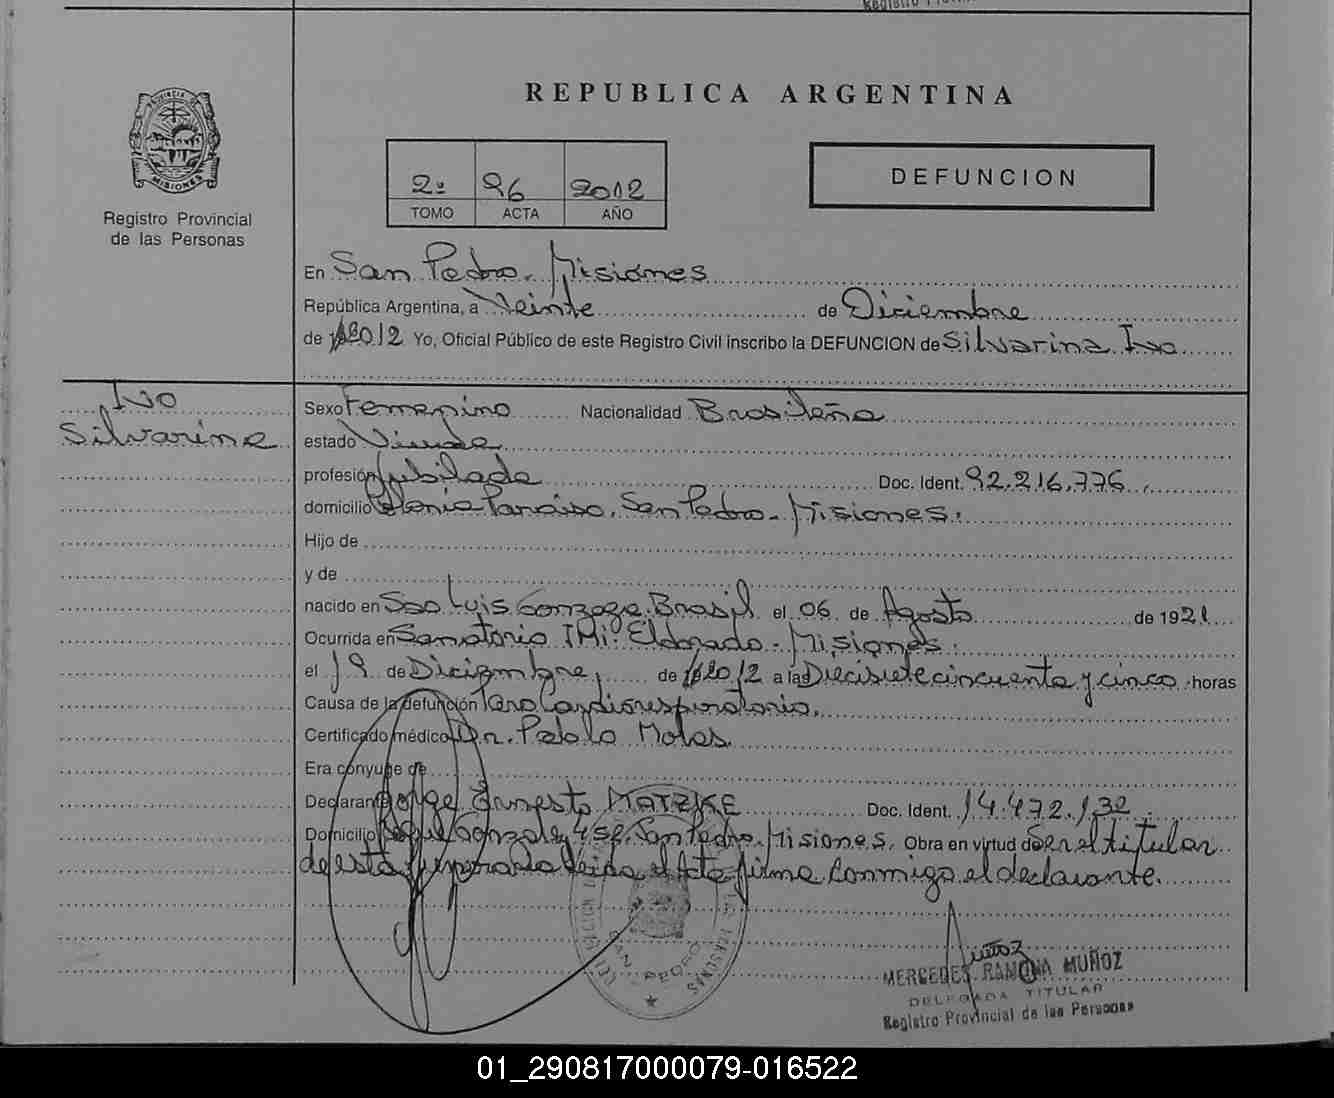 REPUBLICA ARGENTINA
PROVINCIA DE
MISIONES
Registro Provincial
de las Personas
2º 96 2012
TOMO ACTA AÑO
DEFUNCION
En San Pedro. Misiones
República Argentina, a Veinte de Diciembre
de 2012 Yo, Oficial Público de este Registro Civil inscribo la DEFUNCION de Silvarina Ivo
Ivo
Silvarina
Sexo Femenino Nacionalidad Brasileña
estado Viuda
profesión Jubilada Doc. Ident. 92.216.776
domicilio Colonia Paraiso. San Pedro - Misiones.
Hijo de
y de
nacido en Sao Luis Gonzaga. Brasil el 06 de Agosto de 1921
Ocurrida en Sanatorio IMi. Eldorado - Misiones.
el 19 de Diciembre, de 2012 a las Diecisiete cincuenta y cinco horas
Causa de la defunción Paro Cardiorespiratorio.
Certificado médico Dr. Pablo Motas
Era cónyuge de
Declarante Jorge Ernesto MATZKE Doc. Ident. 14.472.132
Domicilio Roque Gonzalez 458. San Pedro. Misiones. Obra en virtud de Ser el titular
de esta funeraria leida el Acta firma conmigo el declarante.
SAN PEDRO
Muñoz
MERCEDES RAMONA MUÑOZ
DELEGADA TITULAR
Registro Provincial de las Personas
01_290817000079-016522